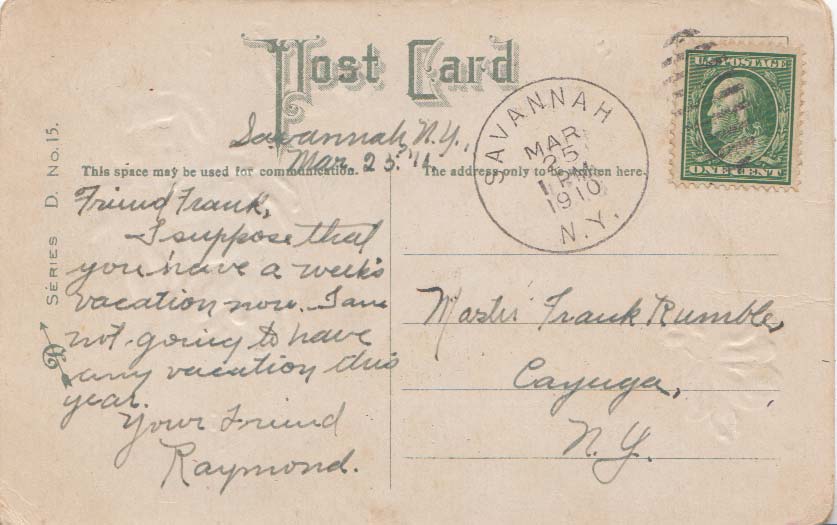 Post Card
U.S. POSTAGE
ONE CENT
SAVANNAH
MAR
25
1 PM
1910
N.Y.
Savannah, N.Y.,
Mar. 25.
This space may be used for communication.
The address only to be written here.
SERIES D. No. 15.
Friend Frank,
I suppose that
you have a week's
vacation now. I am
not going to have
any vacation this
year.
Your Friend
Raymond.
Master Frank Rumble,
Cayuga,
N.Y.